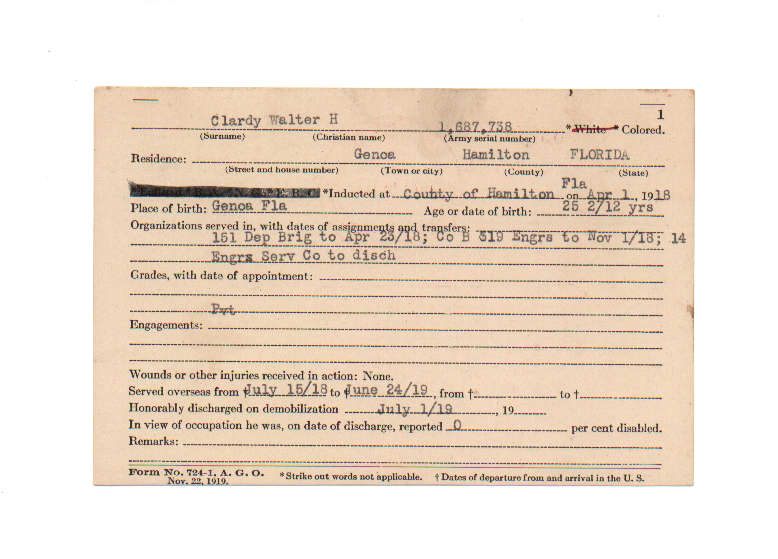 1
Clardy Walter H 1,687,738 * White * Colored.
(Surname) (Christian name) (Army serial number)
Residence: Genoa Hamilton FLORIDA
(Street and house number) (Town or city) (County) (State)
*Inducted at County of Hamilton Fla on Apr 1, 1918
Place of birth: Genoa Fla Age or date of birth: 25 2/12 yrs
Organizations served in, with dates of assignments and transfers:
151 Dep Brig to Apr 23/18; Co B 319 Engrs to Nov 1/18; 14
Engrs Serv Co to disch
Grades, with date of appointment:
Pvt
Engagements:
Wounds or other injuries received in action: None.
Served overseas from † July 15/18 to † June 24/19, from † to †
Honorably discharged on demobilization July 1/19, 19
In view of occupation he was, on date of discharge, reported 0 per cent disabled.
Remarks:
Form No. 724-1, A. G. O. * Strike out words not applicable. † Dates of departure from and arrival in the U. S.
Nov. 22, 1919.